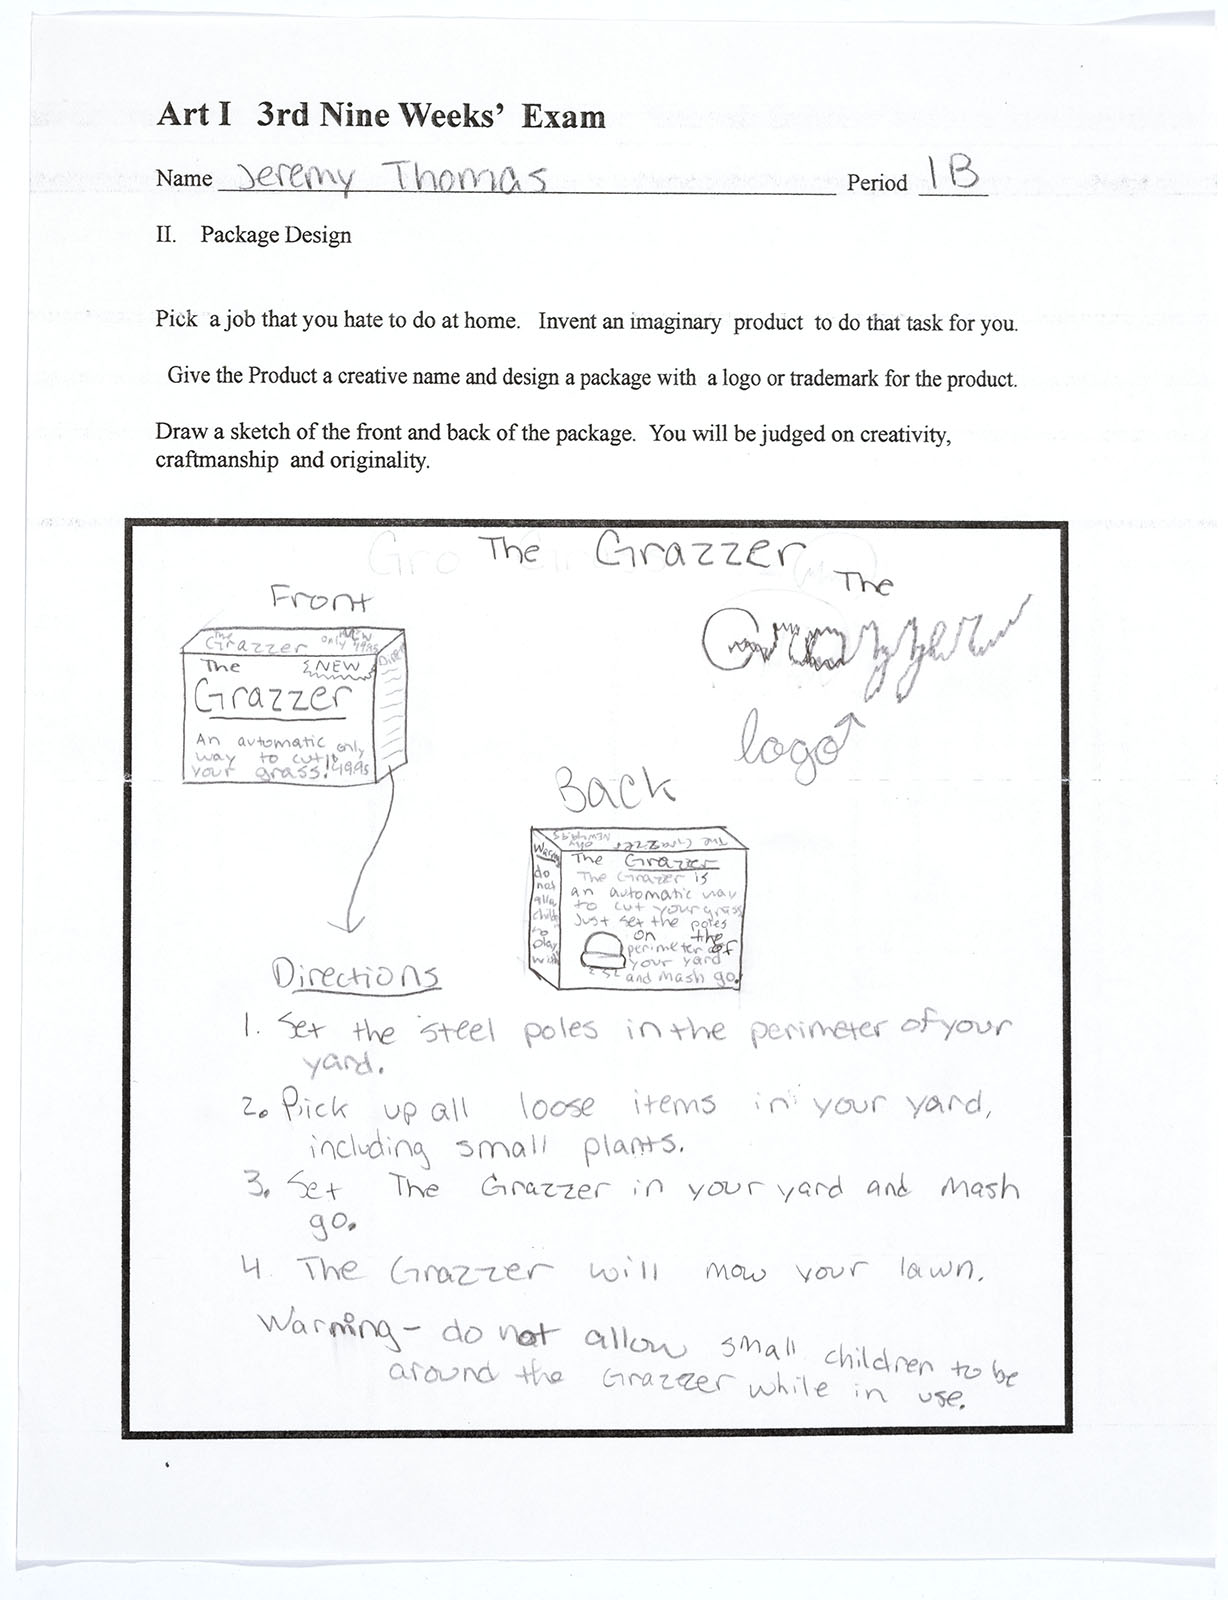 Art I 3rd Nine Weeks' Exam
Name Jeremy Thomas Period 1B
II. Package Design
Pick a job that you hate to do at home. Invent an imaginary product to do that task for you.
Give the Product a creative name and design a package with a logo or trademark for the product.
Draw a sketch of the front and back of the package. You will be judged on creativity,
craftmanship and originality.
The Grazzer
Front
The
Grazzer
only
NEW
The
NEW
Grazzer
An automatic
way to cut
your grass!
only
The
Grazzer
logo
Back
The Grazzer
Warning
do
not
to
play
with
The Grazzer
The Grazzer is
an automatic way
to cut your grass
Just set the poles
on the
perimeter of
your yard
and mash go.
Directions
1. Set the steel poles in the perimeter of your
yard.
2. Pick up all loose items in your yard,
including small plants.
3. Set The Grazzer in your yard and mash
go.
4. The Grazzer will mow your lawn.
Warning - do not allow small children to be
around the Grazzer while in use.